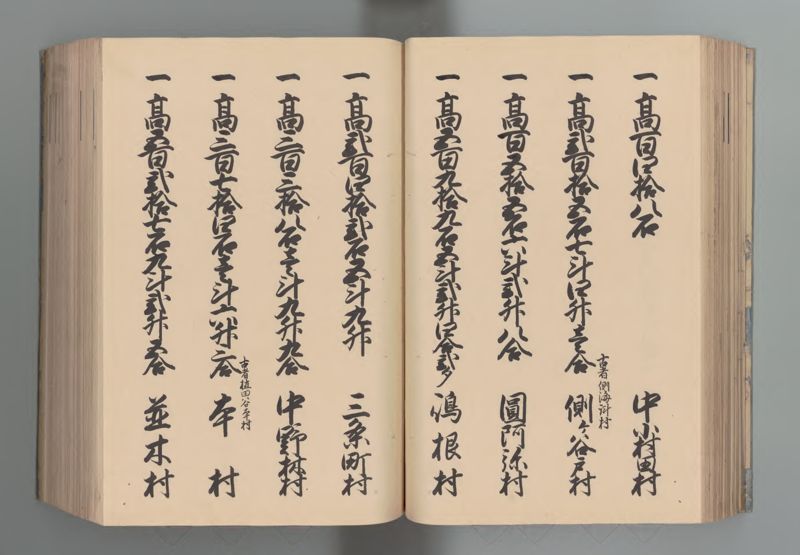 一高百四拾八石 中小村田村
一高弐百拾五石七斗四升壱合 側ヶ谷戸村
古者側海斗村
一高百五拾五石六斗弐升八合 圓阿弥村
一高五百九拾九石五斗弐升四合弐夕 嶋根村
一高弐百四拾弐石五斗九升 三条町村
一高三百三拾八石壱斗九升九合 中野林村
一高三百七拾四石壱斗六升三合 本村
古者植田谷本村
一高五百弐拾七石九斗弐升五合 並木村